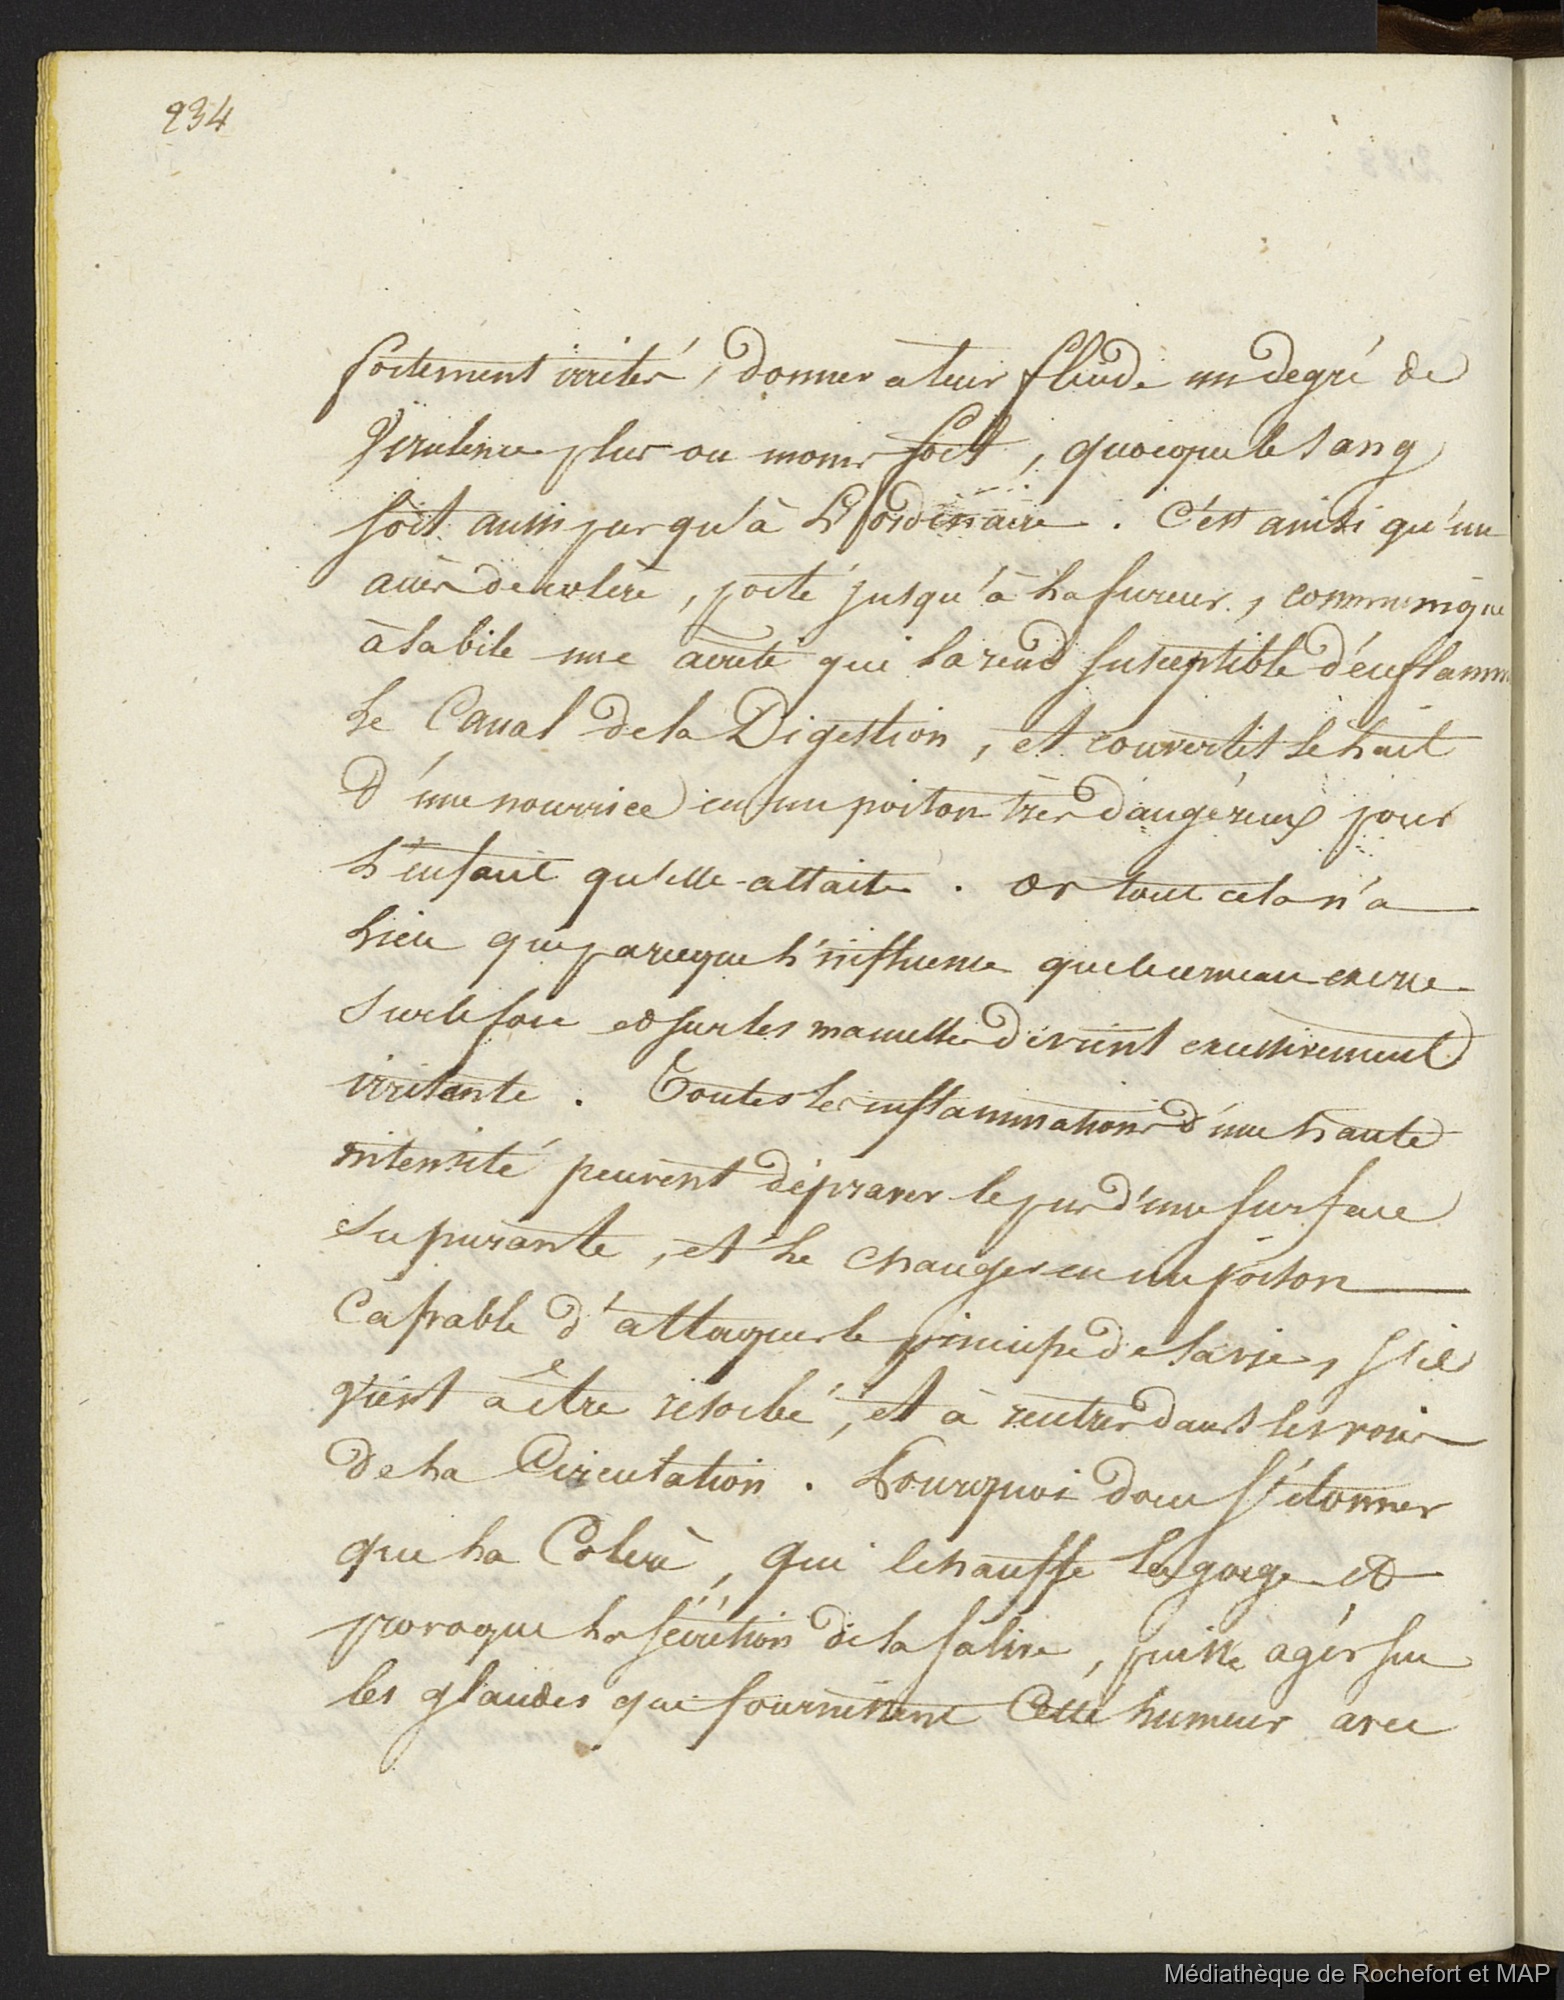 234
fortement irrités, donner à leur fluide un degré de
Virulence plus ou moins fort, quoique le sang
soit aussi pur qu'à L'ordinaire. C'est ainsi qu'un
accès de colère, porté jusqu'à la fureur, communique
à la bile une acreté qui la rend susceptible d'enflamm
Le Canal de la Digestion, et convertit le Lait
d'une nourrice en un poison très dangéreux pour
L'enfant qu'elle allaite. or tout cela n'a
Lieu que parceque L'influence que le cerveau exerce
sur le foie et sur les mamelles devient excessivement
irritante. Toutes les inflammations d'une haute
intensité peuvent dépraver le pus d'une surface
supurante, et Le changer en un poison
Capable d'attaquer le principe de la vie, s'il
vient a être résorbé, et à rentrer dans les voies
de La Circulation. Pourquoi donc s'étonner
que La Colère, qui échauffe la gorge et
provoque La sécrétion de la salive, puisse agir sur
les glandes qui fournissent Cette humeur avec
Médiathèque de Rochefort et MAP